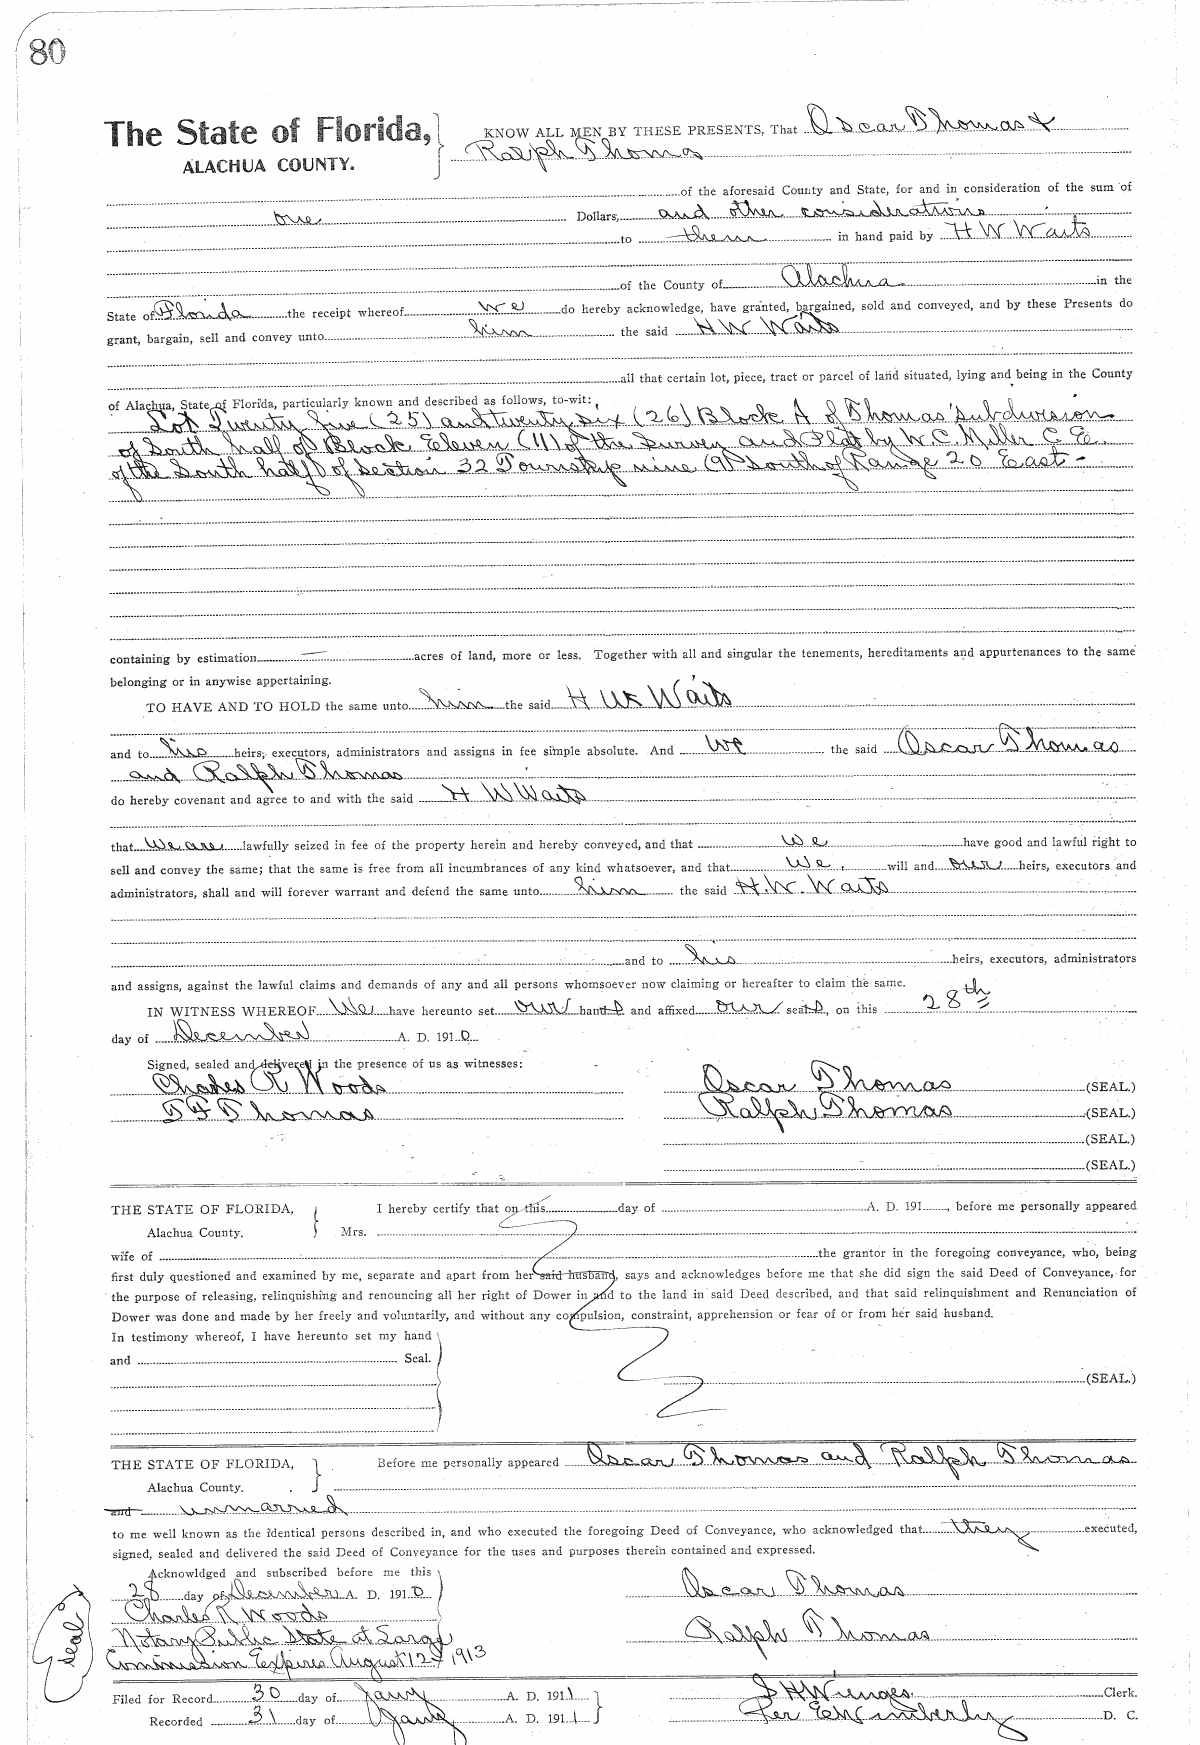 80
The State of Florida,
ALACHUA COUNTY.
KNOW ALL MEN BY THESE PRESENTS, That Oscar Thomas &
Ralph Thomas
of the aforesaid County and State, for and in consideration of the sum of
one Dollars, and other considerations
to them in hand paid by H W Waits
of the County of Alachua in the
State of Florida the receipt whereof we do hereby acknowledge, have granted, bargained, sold and conveyed, and by these Presents do
grant, bargain, sell and convey unto him the said H W Waits
all that certain lot, piece, tract or parcel of land situated, lying and being in the County
of Alachua, State of Florida, particularly known and described as follows, to-wit:
Lot Twenty five (25) and twenty six (26) Block A of Thomas' subdivision
of South half of Block Eleven (11) of the Survey and Plat by W. C. Miller C. E.
of the South half of Section 32 Township nine (9) South of Range 20 East -
containing by estimation — acres of land, more or less. Together with all and singular the tenements, hereditaments and appurtenances to the same
belonging or in anywise appertaining.
TO HAVE AND TO HOLD the same unto him the said H W Waits
and to his heirs, executors, administrators and assigns in fee simple absolute. And we the said Oscar Thomas
and Ralph Thomas
do hereby covenant and agree to and with the said H W Waits
that we are lawfully seized in fee of the property herein and hereby conveyed, and that we have good and lawful right to
sell and convey the same; that the same is free from all incumbrances of any kind whatsoever, and that we will and our heirs, executors and
administrators, shall and will forever warrant and defend the same unto him the said H. W. Waits
and to his heirs, executors, administrators
and assigns, against the lawful claims and demands of any and all persons whomsoever now claiming or hereafter to claim the same.
IN WITNESS WHEREOF We have hereunto set our hands and affixed our seals, on this 28th
day of December A. D. 1910
Signed, sealed and delivered in the presence of us as witnesses:
Charles R Woods Oscar Thomas (SEAL.)
T F Thomas Ralph Thomas (SEAL.)
(SEAL.)
(SEAL.)
THE STATE OF FLORIDA,
Alachua County.
I hereby certify that on this day of A. D. 191 , before me personally appeared
Mrs.
wife of the grantor in the foregoing conveyance, who, being
first duly questioned and examined by me, separate and apart from her said husband, says and acknowledges before me that she did sign the said Deed of Conveyance, for
the purpose of releasing, relinquishing and renouncing all her right of Dower in and to the land in said Deed described, and that said relinquishment and Renunciation of
Dower was done and made by her freely and voluntarily, and without any compulsion, constraint, apprehension or fear of or from her said husband.
In testimony whereof, I have hereunto set my hand
and Seal.
(SEAL.)
THE STATE OF FLORIDA,
Alachua County.
Before me personally appeared Oscar Thomas and Ralph Thomas
and unmarried
to me well known as the identical persons described in, and who executed the foregoing Deed of Conveyance, who acknowledged that they executed,
signed, sealed and delivered the said Deed of Conveyance for the uses and purposes therein contained and expressed.
Acknowldged and subscribed before me this
28 day of December A. D. 1910 Oscar Thomas
Charles R Woods
Notary Public State at Large Ralph Thomas
Commission Expires August 12th 1913
seal
Filed for Record 30 day of Jany A. D. 1911 S H Wienges. Clerk.
Recorded 31 day of Jany A. D. 1911 Per E Wimberly D. C.